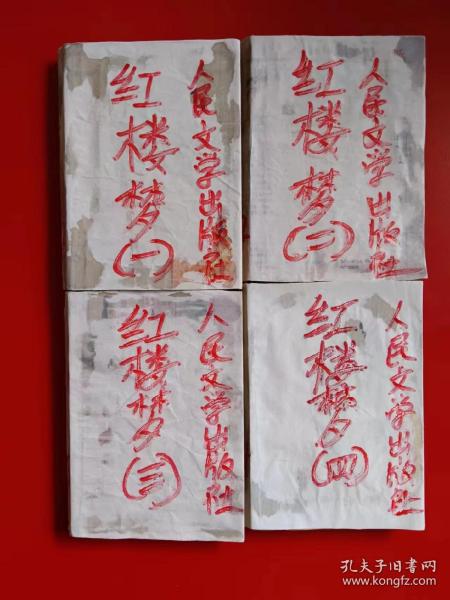 人民文学出版社
红楼梦(一)
人民文学出版社
红楼梦(二)
人民文学出版社
红楼梦(三)
人民文学出版社
红楼梦(四)
孔夫子旧书网
www.kongfz.com